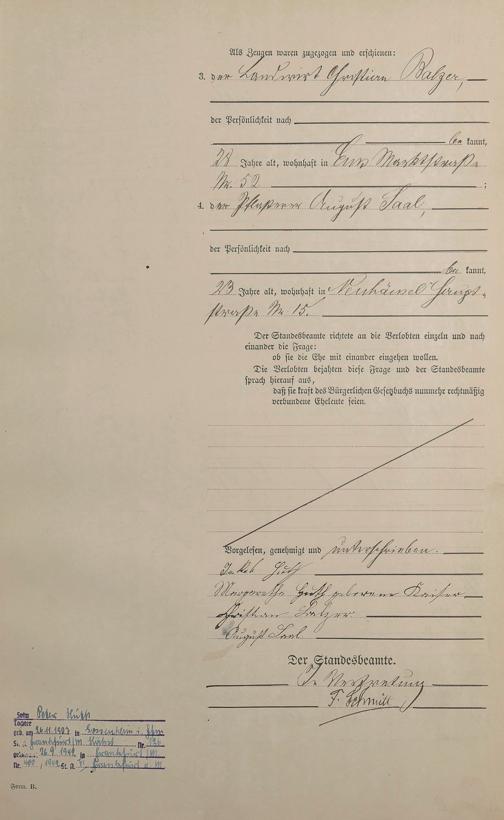 Als Zeugen waren zugezogen und erschienen:
3. der Landwirt Christian Balzer,
der Persönlichkeit nach
be kannt,
22 Jahre alt, wohnhaft in Ems Marktstraße
Nr. 52 ;
4. der Pflasterer August Saal,
der Persönlichkeit nach
be kannt,
23 Jahre alt, wohnhaft in Neuhäusel Haupt-
straße Nr. 15.
Der Standesbeamte richtete an die Verlobten einzeln und nach
einander die Frage:
ob sie die Ehe mit einander eingehen wollen.
Die Verlobten bejahten diese Frage und der Standesbeamte
sprach hierauf aus,
daß sie kraft des Bürgerlichen Gesetzbuchs nunmehr rechtmäßig
verbundene Eheleute seien.
Vorgelesen, genehmigt und unterschrieben.
Jakob Huth
Margarethe Huth geborene Kaiser
Christian Balzer
August Saal
Der Standesbeamte.
In Vertretung
F. Schmitt
Sohn Peter Huth
Tochter
geb. am 26.11.1903 in
St. A. Frankfurt/M. Nr.
26.9.1942 in Frankfurt/M
Nr. /1942 St. A. Frankfurt a. M.
Form. B.